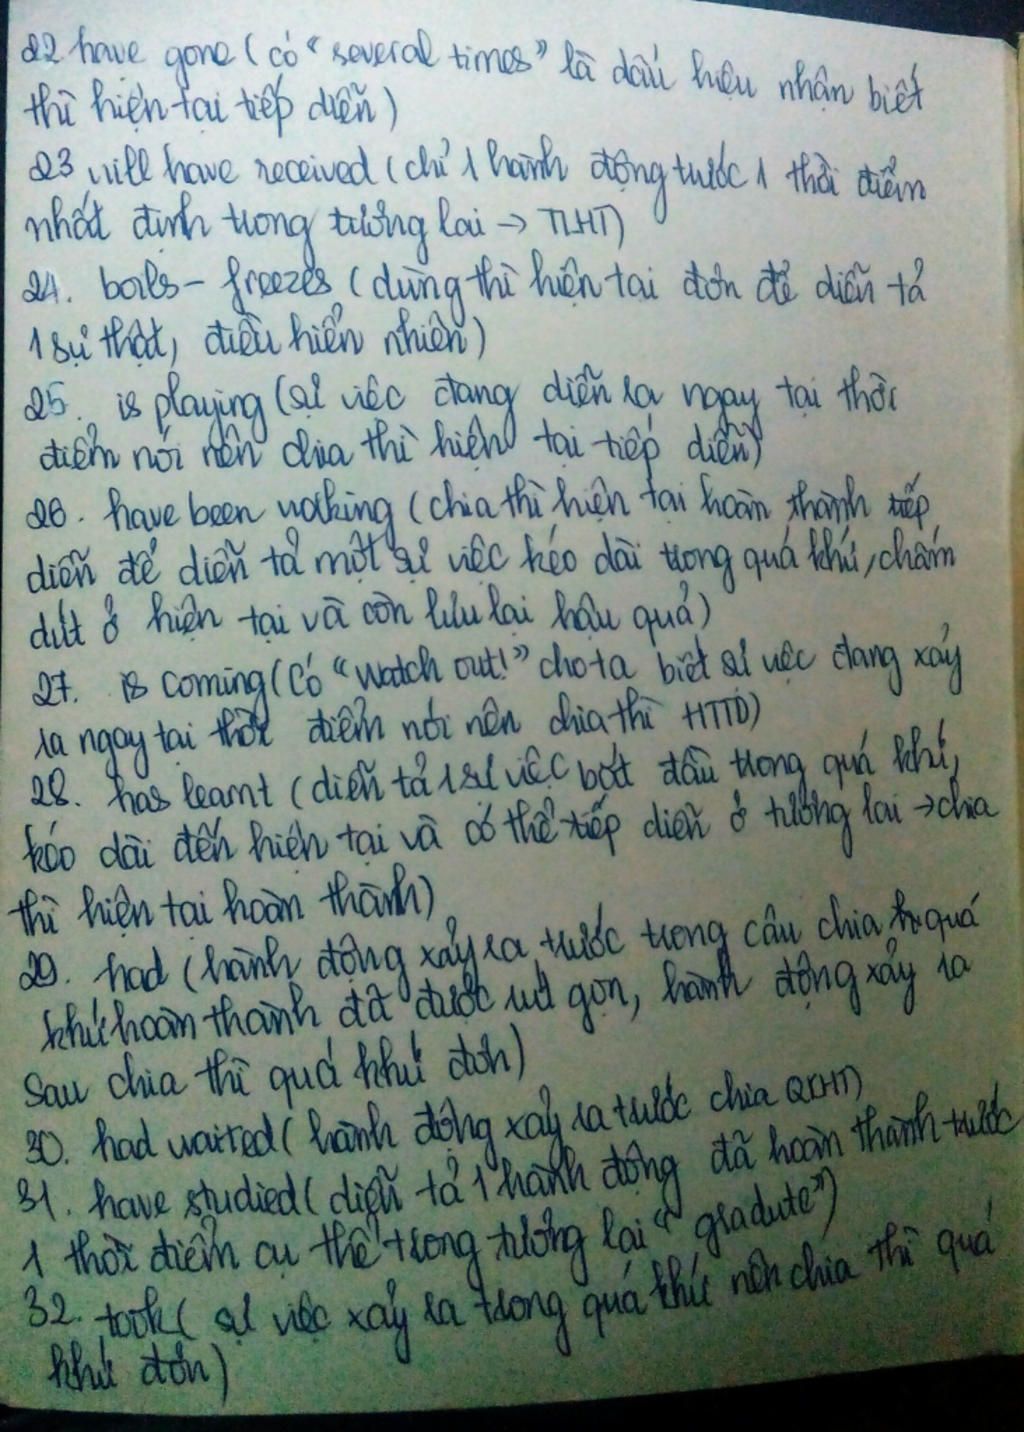 22 have gone ( có "several times" là dấu hiệu nhận biết
thì hiện tại tiếp diễn )
23 will have received ( chỉ 1 hành động trước 1 thời điểm
nhất định trong tương lai → TLHT)
24. boils - freezes ( dùng thì hiện tại đơn để diễn tả
1 sự thật, điều hiển nhiên )
25. is playing ( sự việc đang diễn ra ngay tại thời
điểm nói nên chia thì hiện tại tiếp diễn)
26. have been walking ( chia thì hiện tại hoàn thành tiếp
diễn để diễn tả một sự việc kéo dài trong quá khứ, chấm
dứt ở hiện tại và còn lưu lại hậu quả )
27. is coming ( Có "Watch out!" cho ta biết sự việc đang xảy
ra ngay tại thời điểm nói nên chia thì HTTD)
28. has learnt ( diễn tả 1 sự việc bắt đầu trong quá khứ,
kéo dài đến hiện tại và có thể tiếp diễn ở tương lai → chia
thì hiện tại hoàn thành)
29. had ( hành động xảy ra trước trong câu chia quá
khứ hoàn thành đã được rút gọn, hành động xảy ra
sau chia thì quá khứ đơn )
30. had waited ( hành động xảy ra trước chia QKHT)
31. have studied ( diễn tả 1 hành động đã hoàn thành trước
1 thời điểm cụ thể trong tương lai "gradute")
32. took ( sự việc xảy ra trong quá khứ nên chia thì quá
khứ đơn )